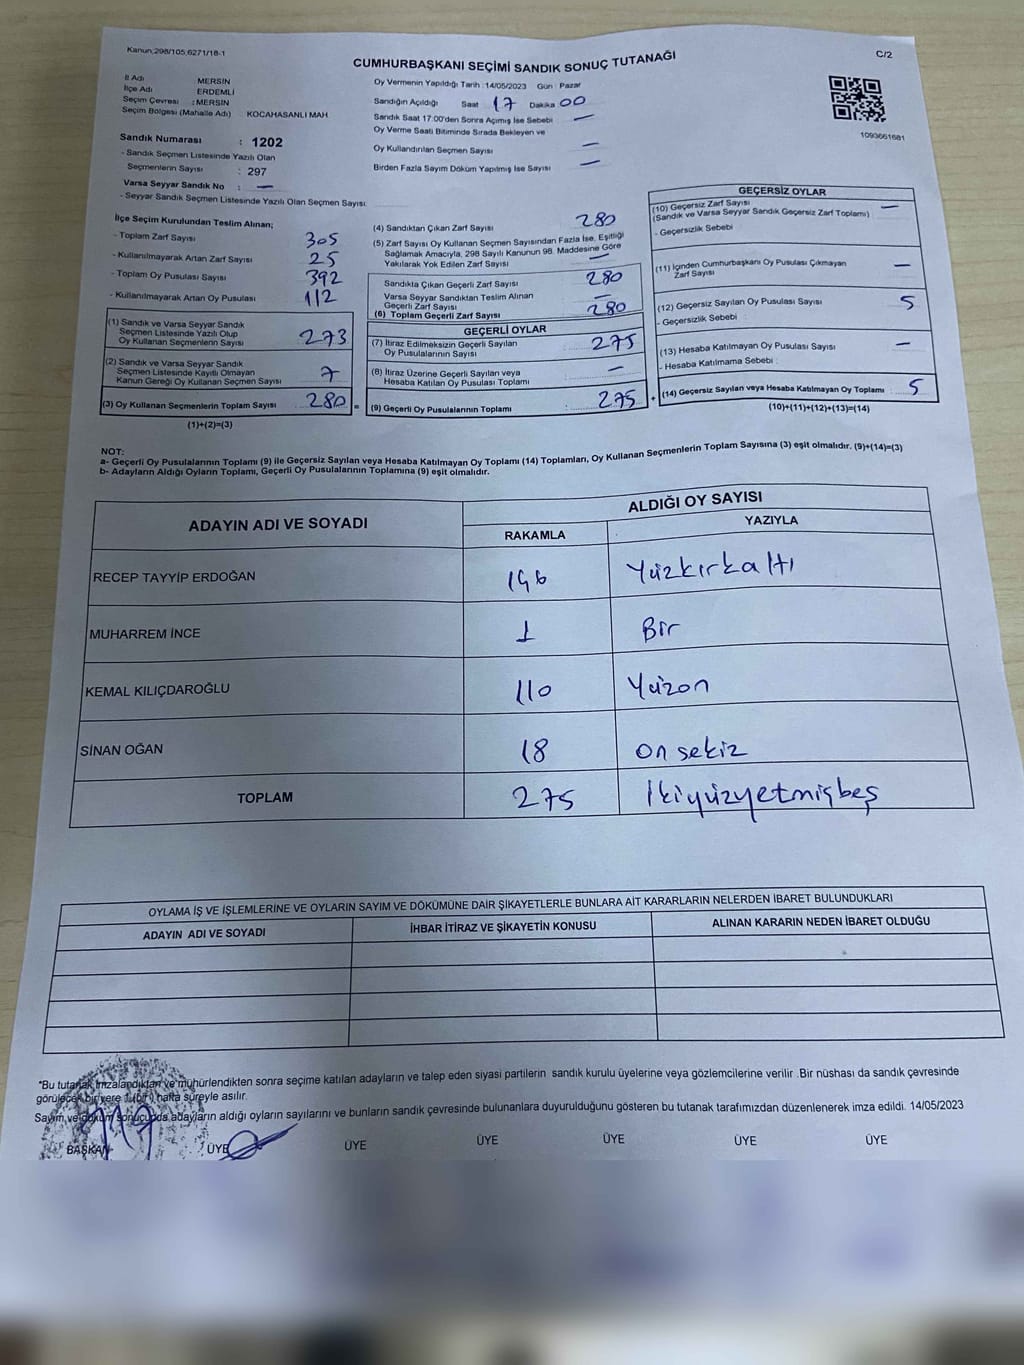 Kanun:298/105,6271/18-1
CUMHURBAŞKANI SEÇİMİ SANDIK SONUÇ TUTANAĞI
C/2
İl Adı MERSİN
İlçe Adı ERDEMLİ
Seçim Çevresi : MERSİN
Seçim Bölgesi (Mahalle Adı) KOCAHASANLI MAH
Sandık Numarası : 1202
- Sandık Seçmen Listesinde Yazılı Olan
Seçmenlerin Sayısı : 297
Varsa Seyyar Sandık No : —
- Seyyar Sandık Seçmen Listesinde Yazılı Olan Seçmen Sayısı:
Oy Vermenin Yapıldığı Tarih : 14/05/2023 Gün : Pazar
Sandığın Açıldığı Saat 17 Dakika 00
Sandık Saat 17:00'den Sonra Açımış İse Sebebi : —
Oy Verme Saati Bitiminde Sırada Bekleyen ve
Oy Kullandırılan Seçmen Sayısı —
Birden Fazla Sayım Döküm Yapılmış İse Sayısı —
1093661681
İlçe Seçim Kurulundan Teslim Alınan;
- Toplam Zarf Sayısı 305
- Kullanılmayarak Artan Zarf Sayısı 25
- Toplam Oy Pusulası Sayısı 392
- Kullanılmayarak Artan Oy Pusulası 112
(1) Sandık ve Varsa Seyyar Sandık
Seçmen Listesinde Yazılı Olup
Oy Kullanan Seçmenlerin Sayısı 273
(2) Sandık ve Varsa Seyyar Sandık
Seçmen Listesinde Kayıtlı Olmayan
Kanun Gereği Oy Kullanan Seçmen Sayısı 7
(3) Oy Kullanan Seçmenlerin Toplam Sayısı 280 =
(1)+(2)=(3)
(4) Sandıktan Çıkan Zarf Sayısı 280
(5) Zarf Sayısı Oy Kullanan Seçmen Sayısından Fazla İse, Eşitliği
Sağlamak Amacıyla, 298 Sayılı Kanunun 98. Maddesine Göre
Yakılarak Yok Edilen Zarf Sayısı —
Sandıkta Çıkan Geçerli Zarf Sayısı 280
Varsa Seyyar Sandıktan Teslim Alınan
Geçerli Zarf Sayısı —
(6) Toplam Geçerli Zarf Sayısı 280
GEÇERLİ OYLAR
(7) İtiraz Edilmeksizin Geçerli Sayılan
Oy Pusulalarının Sayısı : 275
(8) İtiraz Üzerine Geçerli Sayılan veya
Hesaba Katılan Oy Pusulası Toplamı : —
(9) Geçerli Oy Pusulalarının Toplamı : 275 +
GEÇERSİZ OYLAR
(10) Geçersiz Zarf Sayısı —
(Sandık ve Varsa Seyyar Sandık Geçersiz Zarf Toplamı)
- Geçersizlik Sebebi
(11) İçinden Cumhurbaşkanı Oy Pusulası Çıkmayan
Zarf Sayısı —
(12) Geçersiz Sayılan Oy Pusulası Sayısı 5
- Geçersizlik Sebebi
(13) Hesaba Katılmayan Oy Pusulası Sayısı —
- Hesaba Katılmama Sebebi
(14) Geçersiz Sayılan veya Hesaba Katılmayan Oy Toplamı : 5
(10)+(11)+(12)+(13)=(14)
NOT:
a- Geçerli Oy Pusulalarının Toplamı (9) ile Geçersiz Sayılan veya Hesaba Katılmayan Oy Toplamı (14) Toplamları, Oy Kullanan Seçmenlerin Toplam Sayısına (3) eşit olmalıdır. (9)+(14)=(3)
b- Adayların Aldığı Oyların Toplamı, Geçerli Oy Pusulalarının Toplamına (9) eşit olmalıdır.
ADAYIN ADI VE SOYADI ALDIĞI OY SAYISI
RAKAMLA YAZIYLA
RECEP TAYYİP ERDOĞAN 146 Yüzkırkaltı
MUHARREM İNCE 1 Bir
KEMAL KILIÇDAROĞLU 110 Yüzon
SİNAN OĞAN 18 on sekiz
TOPLAM 275 İkiyüzyetmişbeş
OYLAMA İŞ VE İŞLEMLERİNE VE OYLARIN SAYIM VE DÖKÜMÜNE DAİR ŞİKAYETLERLE BUNLARA AİT KARARLARIN NELERDEN İBARET BULUNDUKLARI
ADAYIN ADI VE SOYADI İHBAR İTİRAZ VE ŞİKAYETİN KONUSU ALINAN KARARIN NEDEN İBARET OLDUĞU
*Bu tutanak imzalandıktan ve mühürlendikten sonra seçime katılan adayların ve talep eden siyasi partilerin sandık kurulu üyelerine veya gözlemcilerine verilir .Bir nüshası da sandık çevresinde
görülecek bir yere 1 (bir) hafta süreyle asılır.
Sayım ve döküm sonucunda adayların aldığı oyların sayılarını ve bunların sandık çevresinde bulunanlara duyurulduğunu gösteren bu tutanak tarafımızdan düzenlenerek imza edildi. 14/05/2023
BAŞKAN ÜYE ÜYE ÜYE ÜYE ÜYE ÜYE